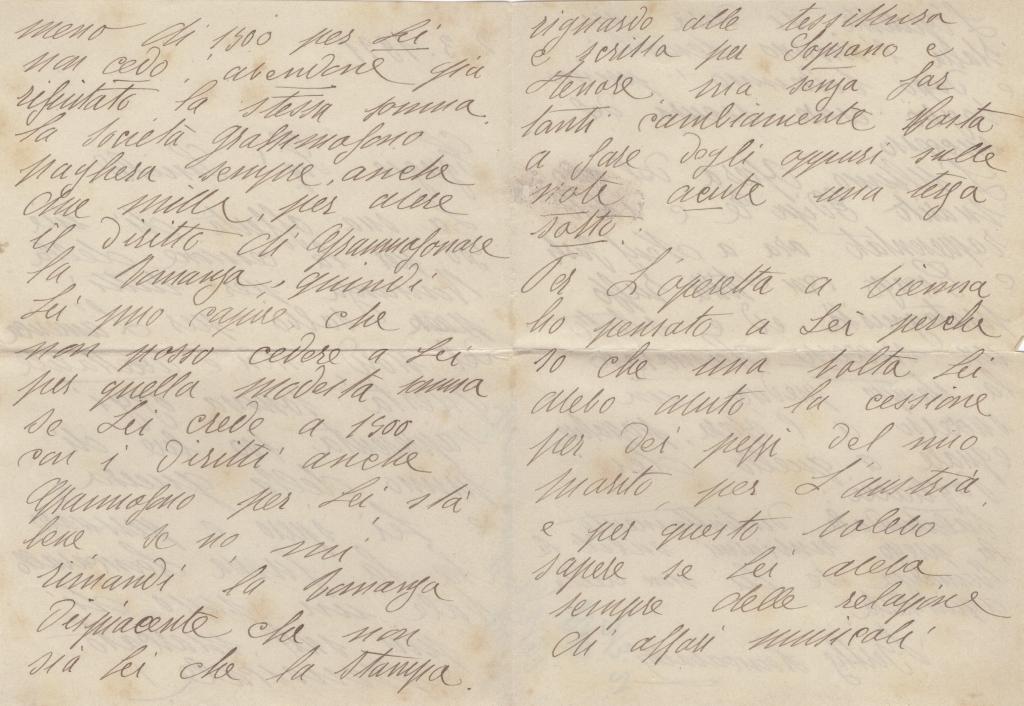 meno di 1500 per Lei
non cedo, avendone già
rifiutato la stessa somma.
la società Grammofono
paghera sempre, anche
due milla, per avere
il diritto di Grammofonare
la Romanza, quindi
Lei può capire che
non posso cedere a Lei
per quella modesta somma
se Lei crede a 1500
con i diritti anche
Grammofono per Lei, stà
bene se no, mi
rimandi la Romanza
Dispiacente che non
sia Lei che la stampa.
riguardo alle tessittura
è scritta per Soprano e
Tenore ma senza far
tanti cambiamente basta
a fare dogli oppure sulle
note acute una terza
sotto.
Per L'operetta a Vienna
ho pensato a Lei perche
so che una volta Lei
aveva avuto la cessione
per dei pezzi del mio
marito, per L'austria
e per questo volevo
sapere se Lei aveva
sempre delle relazione
di affari musicali